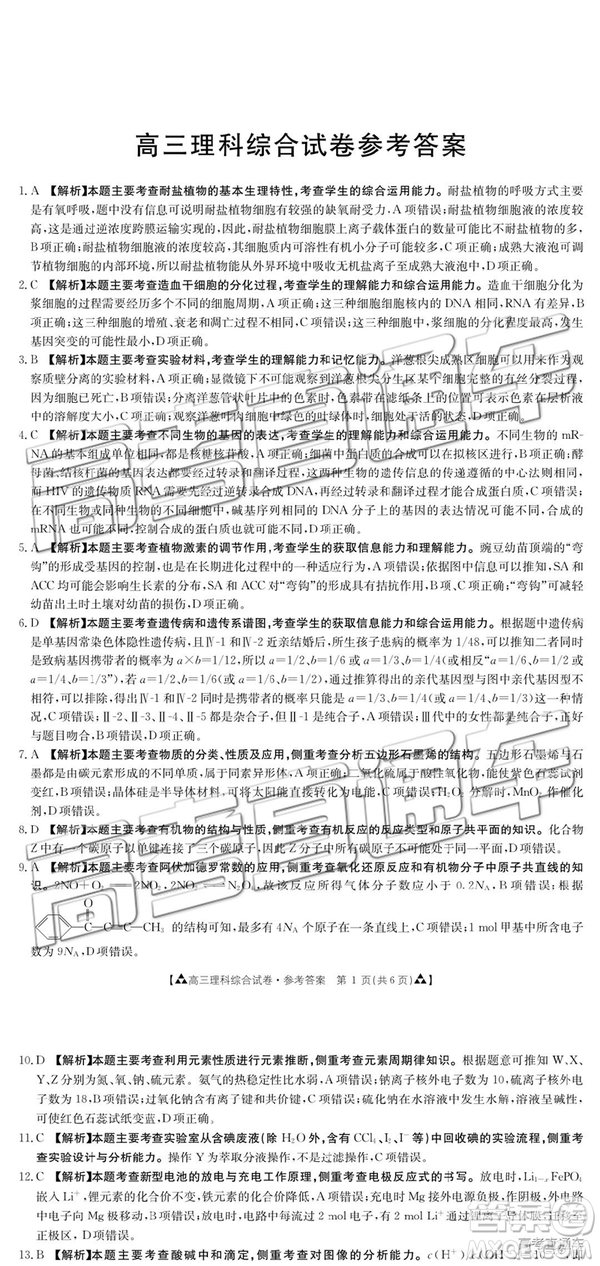 高三理科综合试卷参考答案
1. A 【解析】本题主要考查耐盐植物的基本生理特性,考查学生的综合运用能力。耐盐植物的呼吸方式主要
是有氧呼吸,题中没有信息可说明耐盐植物细胞有较强的缺氧耐受力,A项错误;耐盐植物细胞液的浓度较
高,这是通过逆浓度跨膜运输实现的,因此耐盐植物细胞膜上离子载体蛋白的数量可能比不耐盐植物的多,
B项正确;耐盐植物细胞液的浓度较高,细胞质内可溶性有机小分子可能较多,C项正确;成熟大液泡可调节
植物细胞的内部环境,所以耐盐植物能从外界环境中吸收无机盐离子至成熟大液泡中,D项正确。
2. C 【解析】本题主要考查造血干细胞的分化过程,考查学生的理解能力和综合运用能力。造血干细胞分化为
浆细胞的过程需要经历多个不同的细胞周期,A项正确;这三种细胞细胞核内的DNA相同,RNA有差异,B
项正确;这三种细胞的增殖、衰老和凋亡过程不同,C项错误;这三种细胞中,浆细胞的分化程度最高,发生
基因突变的可能性最小,D项正确。
3. B 【解析】本题主要考查实验材料,考查学生的理解能力和记忆能力。洋葱根尖成熟区细胞可以作为观
察质壁分离的实验材料,A项错误;显微镜下不可能观察到洋葱根尖某个细胞完整的有丝分裂过程,
因为细胞已死亡,B项错误;分离洋葱管状叶片中的色素时,色素在滤纸条的分离说明不同色素在层析液
中的溶解度不同,C项正确;观察洋葱叶肉细胞中绿色的叶绿体时,细胞处于活的状态,D项正确。
4. C 【解析】本题主要考查不同生物的基因的表达,考查学生的理解能力和综合运用能力。不同生物的mR-
NA的基本组成单位相同,都是核糖核苷酸,A项正确;细菌中蛋白质的合成可以在拟核区进行,B项正确;酵
母菌、结核杆菌的基因表达都要经过转录和翻译过程,这两种生物的遗传信息的传递遵循的中心法则相同,
而HIV的遗传物质RNA需要先经过逆转录合成DNA,再经过转录和翻译才能合成蛋白质,C项错误;
在不同生物或同种生物的不同细胞中,碱基序列相同的DNA上不同基因的表达可能不同,合成的
mRNA也可能不同,控制合成的蛋白质也可能不同,D项正确。
5. A 【解析】本题主要考查植物激素的调节作用,考查学生的获取信息能力和理解能力。豌豆幼苗顶端的“弯
钩”的形成受基因的控制,是在长期进化过程中形成的一种适应性特征,A项错误;依据图中信息可以推知,SA和
ACC均可能会影响基因的表达,SA和ACC对“弯钩”的形成具有拮抗作用,B项、C项正确;“弯钩”可减轻
幼苗出土时土壤对幼苗的损伤,D项正确。
6. D 【解析】本题主要考查遗传病和遗传系谱图,考查学生的获取信息能力和综合运用能力。根据题中遗传病
是单基因常染色体隐性遗传病,且Ⅳ-1和Ⅳ-2近亲结婚后,所生孩子患病的概率为1/48,可以推知二者同时
是致病基因携带者的概率为a×b=1/12,所以a=1、b=1/12或a=1/2、b=1/6(或a=1/6、b=1/2或
a=1/4、b=1/3”),若a=1/2、b=1/6(或a=1/6、b=1/2),则相应推出的亲代基因型与图中亲代基因型不
相符,可以排除,得出Ⅳ-1和Ⅳ-2同时是携带者的概率只能是a=1/3、b=1/4(或a=1/4、b=1/3),A项错
误、B项错误;Ⅱ-2、Ⅱ-3、Ⅱ-4可能是杂合子,但Ⅱ-1是纯合子,C项错误;Ⅲ代中的女性都是纯合子,正好
与题意吻合,D项正确。
7. A 【解析】本题主要考查物质的分类、性质及应用,侧重考查分析五边形石墨烯的结构。五边形石墨烯与石
墨都是由碳元素形成的不同单质,属于同素异形体,A项正确;二氧化硫属于酸性氧化物,能使紫色石蕊试剂
变红,B项错误;晶体硅是半导体材料,可将太阳能直接转化为电能,C项错误;H₂O₂分解时,MnO₂作催化
剂,D项错误。
8. D 【解析】本题主要考查有机物的结构与性质,侧重考查有机反应的反应类型和原子共平面的知识。化合物
Z中有一个碳原子以单键连接了三个碳原子,因此Z分子中所有碳原子不可能共平面,D项错误。
9. A 【解析】本题主要考查阿伏加德罗常数的应用,侧重考查氧化还原反应和有机物分子中原子共直线的知
识。2NO+O₂══2NO₂,2NO₂⇌N₂O₄,故该反应所得气体分子数小于0.2Nₐ,A项正确;根据
O
—C—C≡C—CH₃ 的结构可知,最多有4Nₐ个原子在一条直线上,C项错误;1 mol甲基中所含电子
数为9Nₐ,D项错误。
【高三理科综合试卷·参考答案 第1页(共6页)】
10. D 【解析】本题主要考查利用元素性质进行元素推断,侧重考查元素周期律知识。根据题意可知W、X、
Y、Z分别为氮、氧、钠、硫元素。氨气的热稳定性比水弱,A项错误;钠离子核外电子数为10,硫离子核外电子
数为18,B项错误;过氧化钠含有离子键和共价键,C项错误;硫化钠在水溶液中发生水解,溶液显碱性,
可使红色石蕊试纸变蓝,D项正确。
11. C 【解析】本题主要考查实验室从含碘废液(除H₂O外,含有CCl₄、I₂、I⁻等)中回收碘的实验流程,侧重考
查实验设计与分析能力。操作Y为萃取分液操作,不是过滤操作,C项错误。
12. C 【解析】本题主要考查新型电池的放电与充电工作原理,侧重考查电极反应式的书写。放电时,Li₁₋ₓFePO₄
嵌入Li⁺,锂元素的化合价不变,铁元素的化合价降低,A项错误;放电时,Mg极为外电路的负极,所以外电
路中电子由Mg极流出,B项错误;充电时,外电路中每通过2 mol电子,有2 mol Li⁺通过锂离子导体膜迁移至
正极区,D项错误。
13. B 【解析】本题主要考查酸碱中和滴定,侧重考查对图像的分析能力。